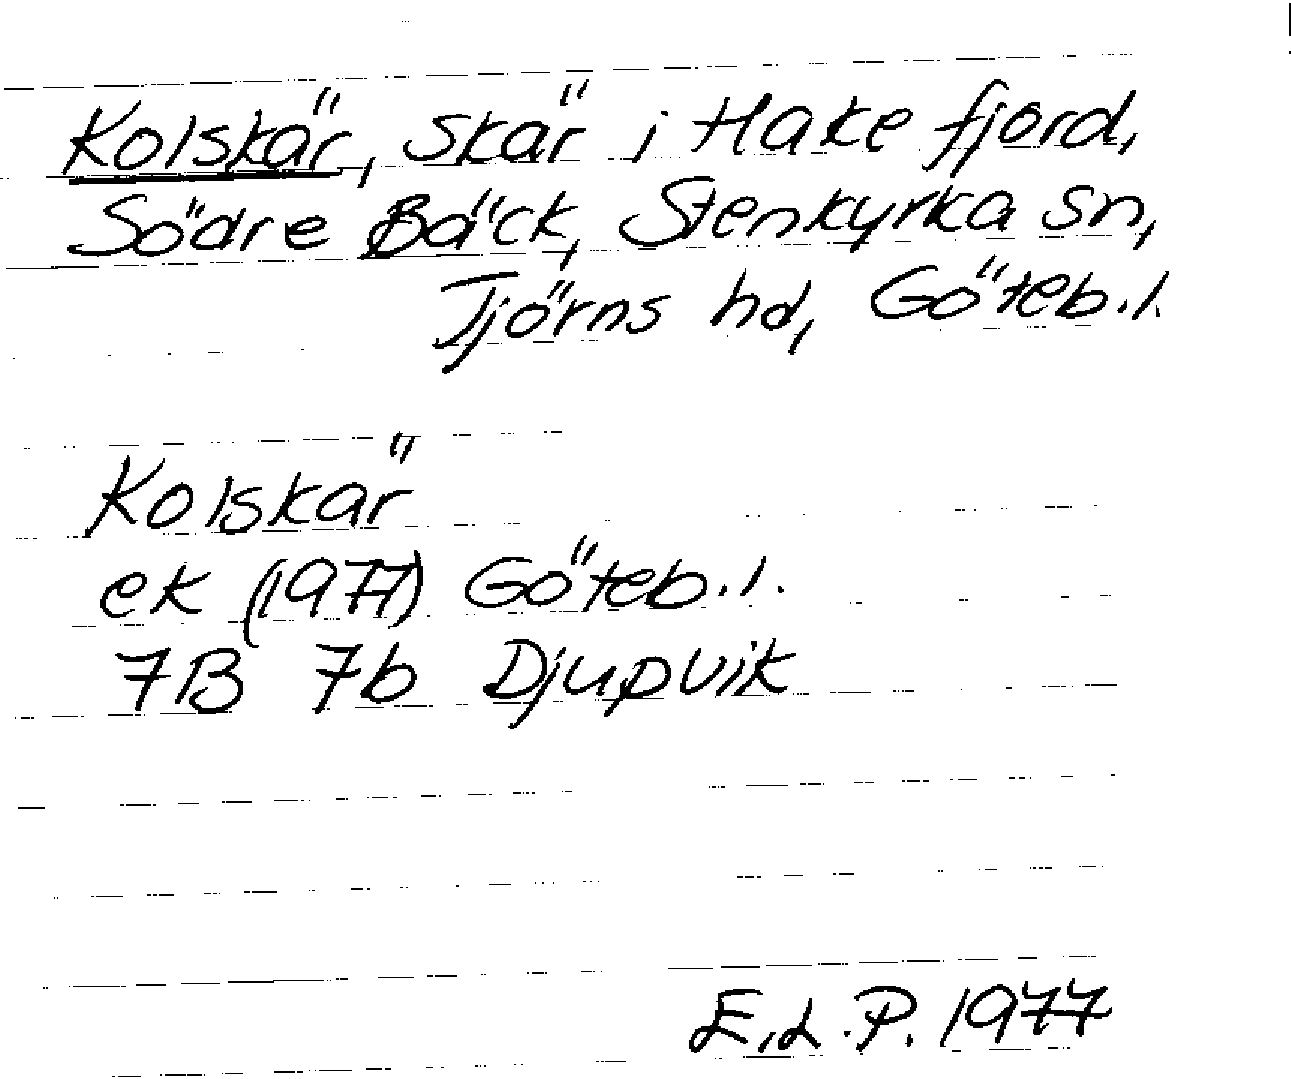 Kolskär, skär i Hake fjord,
Södre Bäck, Stenkyrka sn,
Tjörns hd, Göteb.l.
Kolskär
ek (1977) Göteb.l.
7B 7b Djupvik
E.L.P. 1977